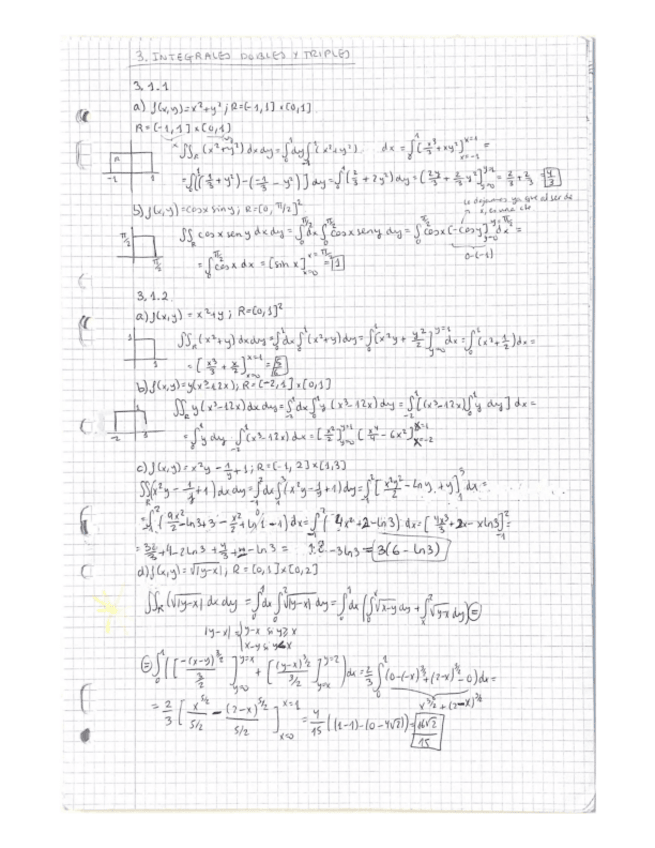 3. INTEGRALES DOBLES Y TRIPLES
3.1.1
a) f(x,y)=x²+y²; R=[-1,1]×[0,1]
R=[-1,1]×[0,1]
∬R (x²+y²) dxdy = ∫₀¹ dy ∫₋₁¹ (x²+y²) dx = ∫₀¹ [x³/3 + xy²]ₓ₌₋₁ˣ⁼¹ =
R -1 1
= ∫₀¹ [(1/3 + y²) - (-1/3 - y²)] dy = ∫₀¹ (2/3 + 2y²) dy = [2y/3 + 2/3 y³]ᵧ₌₀ʸ⁼¹ = 2/3 + 2/3 = 4/3
b) f(x,y)=cosx siny; R=[0, π/2]²
lo dejamos ya que al ser de
x, es una cte
π/2 π/2
∬R cosx seny dxdy = ∫₀^π/2 dx ∫₀^π/2 cosx seny dy = ∫₀^π/2 cosx [-cosy]ᵧ₌₀^y=π/2 dx =
0-(-1)
= ∫₀^π/2 cosx dx = [sin x]ₓ₌₀^x=π/2 = 1
3.1.2
a) f(x,y) = x²+y; R=[0,1]²
1 1
∬R (x²+y) dxdy = ∫₀¹ dx ∫₀¹ (x²+y) dy = ∫₀¹ [x²y + y²/2]ᵧ₌₀ʸ⁼¹ dx = ∫₀¹ (x² + 1/2) dx =
= [x³/3 + x/2]ₓ₌₀ˣ⁼¹ = 5/6
b) f(x,y)=y(x³-12x); R=[-2,1]×[0,1]
-2 1
∬R y(x³-12x) dxdy = ∫₋₂¹ dx ∫₀¹ y(x³-12x) dy = ∫₋₂¹ [(x³-12x) ∫₀¹ y dy] dx =
= ∫₀¹ y dy · ∫₋₂¹ (x³-12x) dx = [x²/2]ᵧ₌₀ʸ⁼¹ [x⁴/4 - 6x²]ₓ₌₋₂ˣ⁼¹
c) f(x,y)=x²y - 1/y + 1; R=[-1,2]×[1,3]
∬R (x²y - 1/y + 1) dxdy = ∫₋₁² dx ∫₁³ (x²y - 1/y + 1) dy = ∫₋₁² [x²y²/2 - lny + y]₁³ dx =
= ∫₋₁² (9x²/2 - ln3 + 3 - x²/2 + ln1 - 1) dx = ∫₋₁² (4x² + 2 - ln3) dx = [4x³/3 + 2x - xln3]₋₁² =
= 32/3 + 4 - 2ln3 + 4/3 + 2 - ln3 = 18 - 3ln3 = 3(6 - ln3)
d) f(x,y)=√|y-x|; R=[0,1]×[0,2]
∬R (√|y-x|) dxdy = ∫₀¹ dx ∫₀² √|y-x| dy = ∫₀¹ dx (∫₀ˣ √x-y dy + ∫ₓ² √y-x dy) =
|y-x| = y-x si y≥x
x-y si y<x
= ∫₀¹ ([-(x-y)^3/2 / 3/2]ᵧ₌₀ʸ⁼ˣ + [(y-x)^3/2 / 3/2]ᵧ₌ₓʸ⁼²) dx = 2/3 ∫₀¹ (0-(-x)^3/2 + (2-x)^3/2 - 0) dx =
x^3/2 + (2-x)^3/2
= 2/3 [x^5/2 / 5/2 - (2-x)^5/2 / 5/2]ₓ₌₀ˣ⁼¹ = 4/15 ((1-1)-(0-4√2)) = 16√2/15